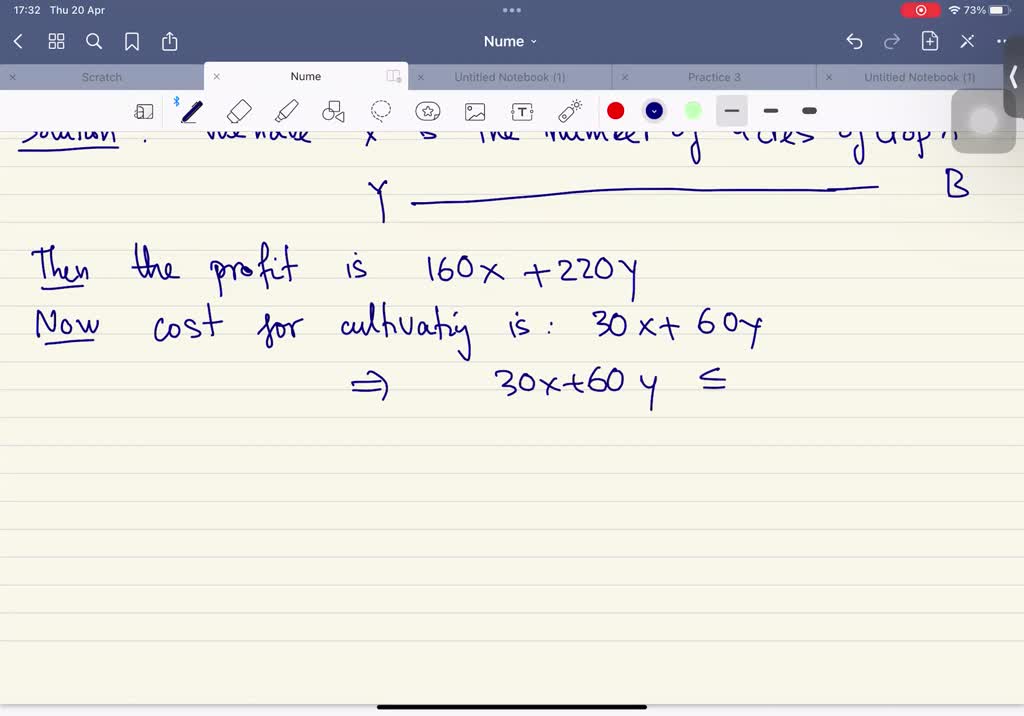 17:32 Thu 20 Apr
73%
Nume
Scratch
Nume
Untitled Notebook (1)
Practice 3
Untitled Notebook (1)
Solution : We have x is the number of acres of crop A
Y B
Then the profit is 160x + 220y
Now cost for cultivating is : 30x + 60y
⇒ 30x + 60y ≤